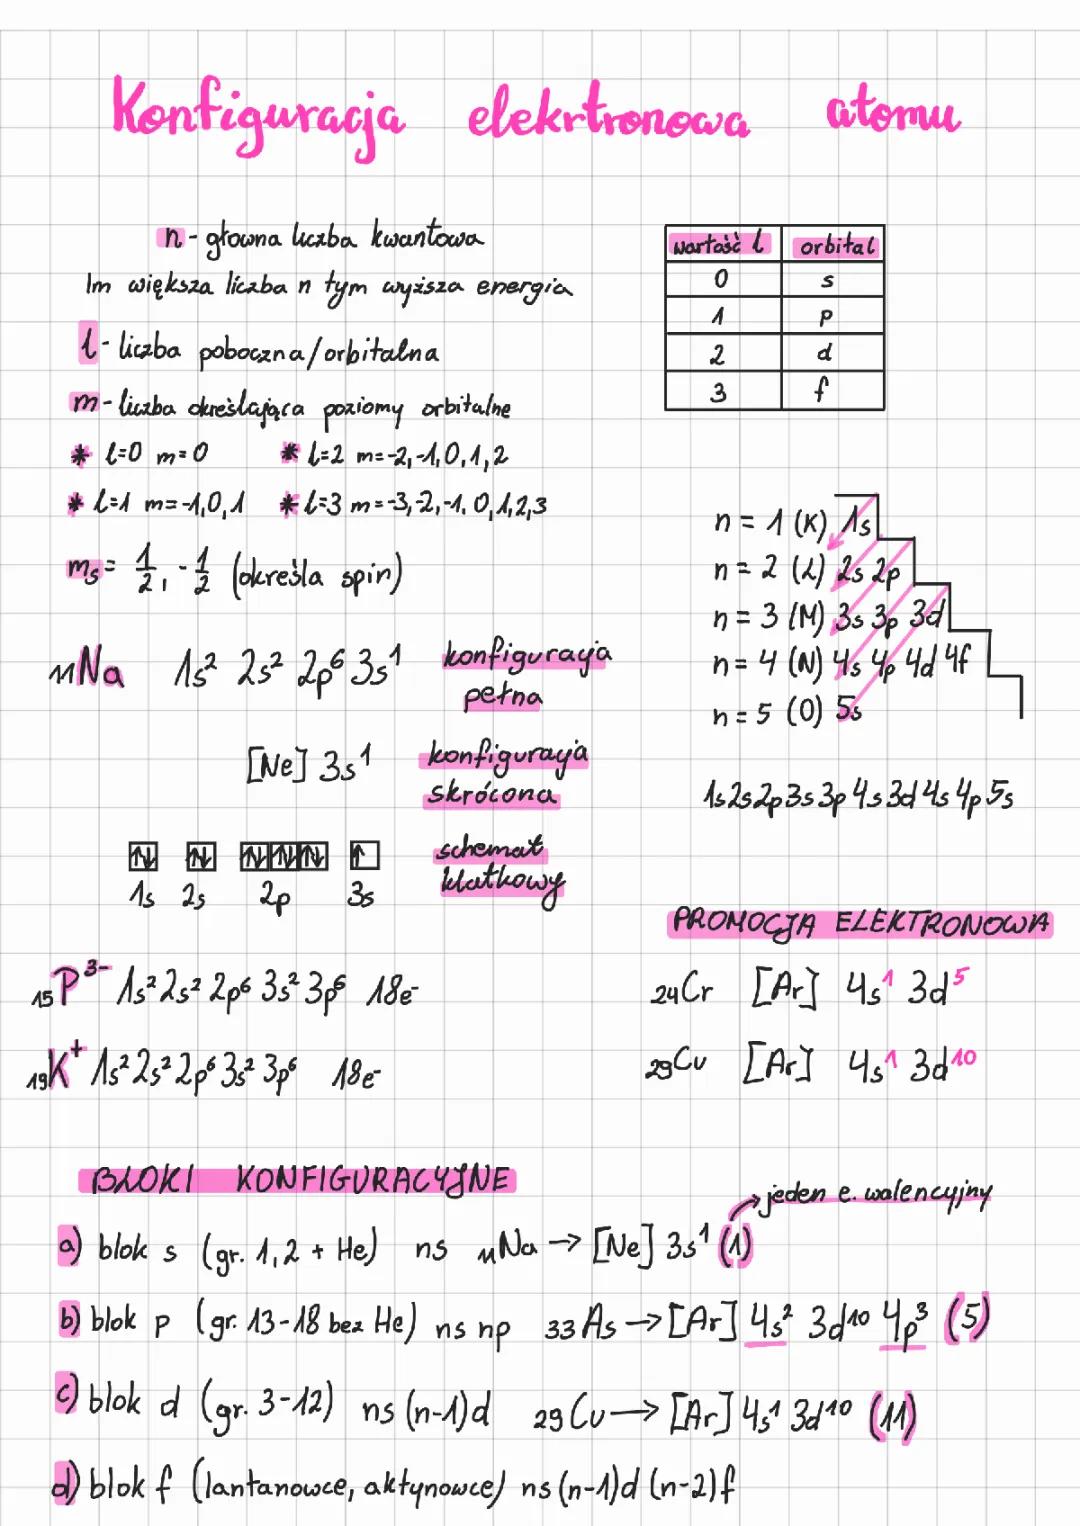 Konfiguracja elekrtronowa atomu
n - głowna liczba kwantowa
Im większa liczba n tym wyższa energia
l - liczba poboczna/orbitalna
m - liczba określająca poziomy orbitalne
* l=0 m=0 * l=2 m=-2,-1,0,1,2
* l=1 m=-1,0,1 * l=3 m=-3,-2,-1,0,1,2,3
mₛ = 1/2, -1/2 (określa spin)
wartość l orbital
0 s
1 p
2 d
3 f
n = 1 (K) 1s
n = 2 (L) 2s 2p
n = 3 (M) 3s 3p 3d
n = 4 (N) 4s 4p 4d 4f
n = 5 (O) 5s
1s 2s 2p 3s 3p 4s 3d 4s 4p 5s
₁₁Na 1s² 2s² 2p⁶ 3s¹ konfiguracja
pełna
[Ne] 3s¹ konfiguracja
skrócona
↑↓ ↑↓ ↑↓↑↓↑↓ ↑ schemat
1s 2s 2p 3s klatkowy
₁₅P³⁻ 1s² 2s² 2p⁶ 3s² 3p⁶ 18e⁻
₁₉K⁺ 1s² 2s² 2p⁶ 3s² 3p⁶ 18e⁻
PROMOCJA ELEKTRONOWA
₂₄Cr [Ar] 4s¹ 3d⁵
₂₉Cu [Ar] 4s¹ 3d¹⁰
BLOKI KONFIGURACYJNE
→ jeden e. walencyjny
a) blok s (gr. 1,2 + He) ns ₁₁Na → [Ne] 3s¹ (1)
b) blok p (gr. 13-18 bez He) ns np 33 As → [Ar] 4s² 3d¹⁰ 4p³ (5)
c) blok d (gr. 3-12) ns (n-1)d 29 Cu → [Ar] 4s¹ 3d¹⁰ (11)
d) blok f (lantanowce, aktynowce) ns (n-1)d (n-2)f